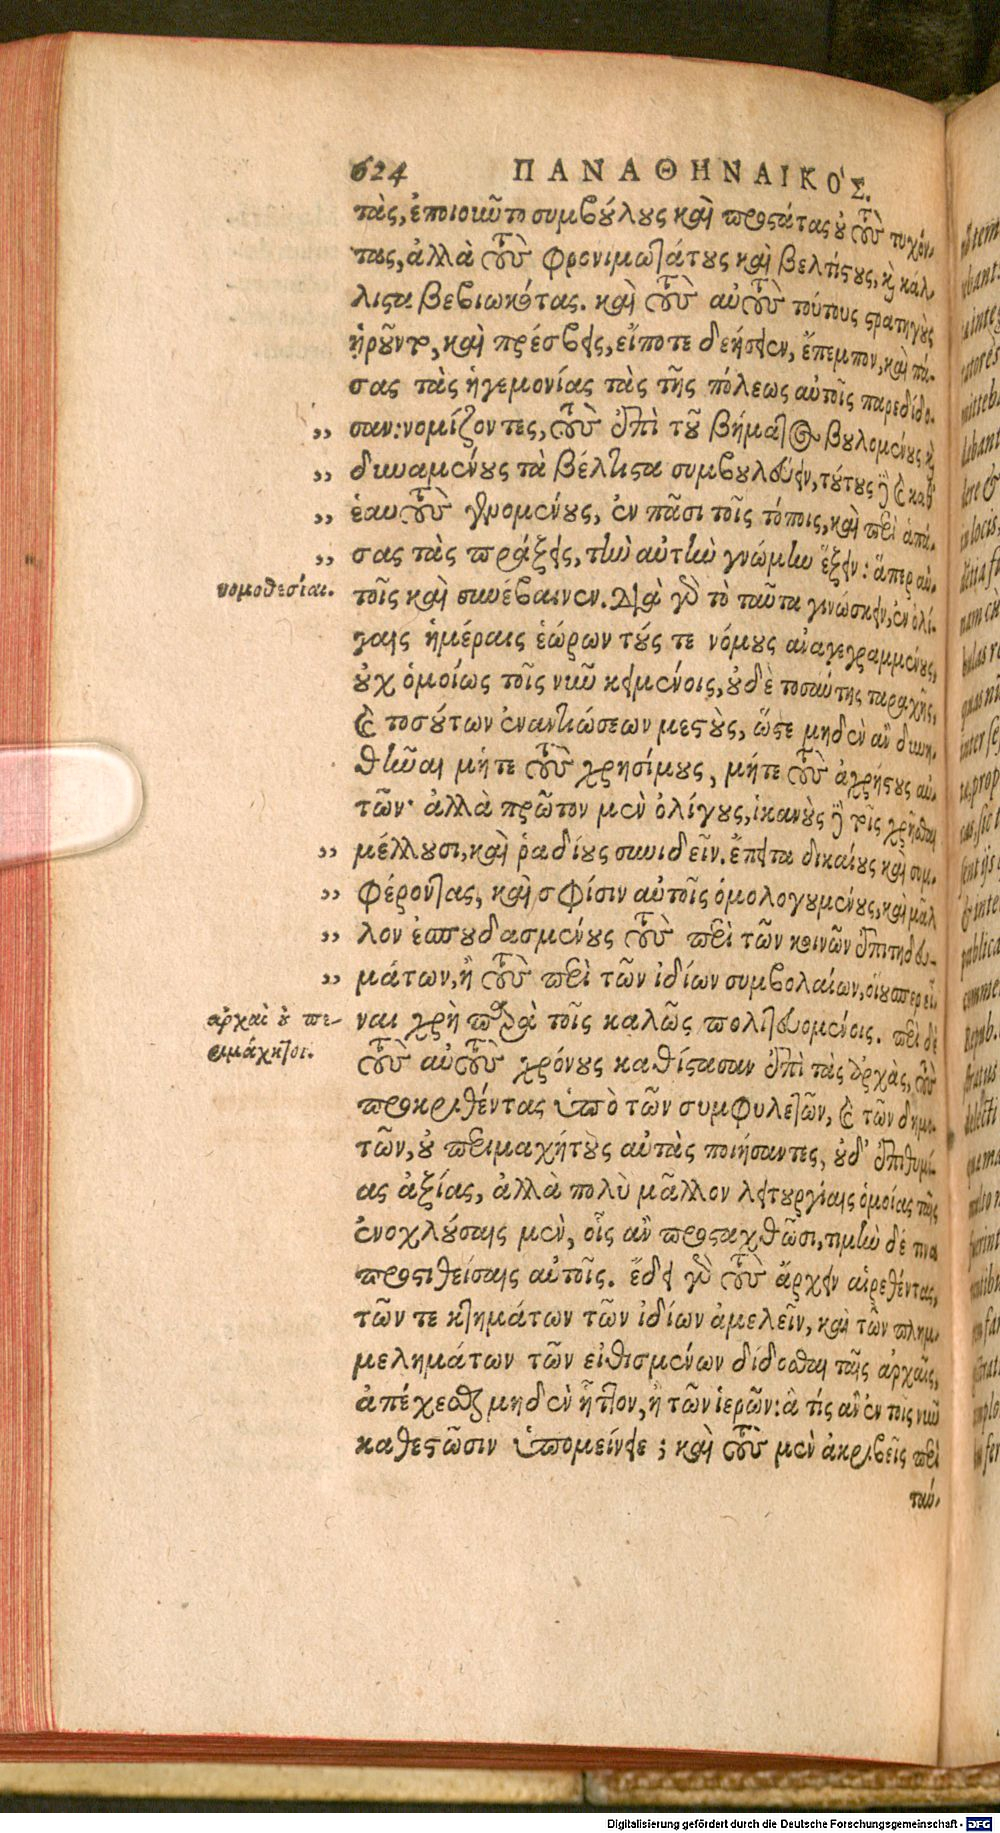 624 ΠΑΝΑΘΗΝΑΙΚΟ'Σ.
τὰς, ἐποιοῦντο συμβούλους καὶ προστάτας οὐ τοὺς τυχόν-
τας, ἀλλὰ τοὺς φρονιμωτάτους καὶ βελτίστους, καὶ κάλ-
λιστα βεβιωκότας. καὶ τοὺς αὐτοὺς τούτους στρατηγοὺς
ᾑροῦντο, καὶ πρέσβεις, εἴποτε δεήσειεν, ἔπεμπον, καὶ πά-
σας τὰς ἡγεμονίας τὰς τῆς πόλεως αὐτοῖς παρεδίδο-
„ σαν: νομίζοντες, τοὺς ἐπὶ τοῦ βήματος βουλομένους καὶ
„ δυναμένους τὰ βέλτιστα συμβουλεύειν, τούτους δὲ καὶ καθ'
„ ἑαυτοὺς γενομένους, ἐν πᾶσι τοῖς τόποις, καὶ περὶ ἁπά-
„ σας τὰς πράξεις, τὴν αὐτὴν γνώμην ἕξειν: ἅπερ αὐ-
νομοθεσίαι. τοῖς καὶ συνέβαινεν. Διὰ γὰρ τὸ ταῦτα γινώσκειν, ἐν ὀλί-
γαις ἡμέραις ἑώρων τούς τε νόμους ἀναγεγραμμένους,
οὐχ ὁμοίως τοῖς νῦν κειμένοις, οὐδὲ τοσαύτης ταραχῆς,
καὶ τοσούτων ἐναντιώσεων μεστοὺς, ὥστε μηδὲν ἂν δυνη-
θῆναι μήτε τοὺς χρησίμους, μήτε τοὺς ἀχρήστους αὐ-
τῶν· ἀλλὰ πρῶτον μὲν ὀλίγους, ἱκανοὺς δὲ τοῖς χρῆσθαι
„ μέλλουσι, καὶ ῥᾳδίους συνιδεῖν. ἔπειτα δικαίους καὶ συμ-
„ φέροντας, καὶ σφίσιν αὐτοῖς ὁμολογουμένους, καὶ μᾶλ
„ λον ἐσπουδασμένους τοὺς περὶ τῶν κοινῶν ἐπιτηδευ-
„ μάτων, ἢ τοὺς περὶ τῶν ἰδίων συμβολαίων, οἵουσπερ εἶ
ἀρχαὶ οὐ πε-
ριμάχητοι.
ναι χρὴ παρὰ τοῖς καλῶς πολιτευομένοις. περὶ δὲ
τοὺς αὐτοὺς χρόνους καθίστασαν ἐπὶ τὰς ἀρχὰς, τοὺς
προκριθέντας ὑπὸ τῶν συμφυλετῶν, καὶ τῶν δημο-
τῶν, οὐ περιμαχήτους αὐτὰς ποιήσαντες, οὐδ' ἐπιθυμί-
ας ἀξίας, ἀλλὰ πολὺ μᾶλλον λειτουργίαις ὁμοίας ταῖς
ἐνοχλούσαις μὲν, οἷς ἂν προσταχθῶσι, τιμὴν δέ τινα
προστιθείσαις αὐτοῖς. ἔδει γὰρ τοὺς ἄρχειν αἱρεθέντας,
τῶν τε κτημάτων τῶν ἰδίων ἀμελεῖν, καὶ τῶν πλημ-
μελημάτων τῶν εἰθισμένων δίδοσθαι ταῖς ἀρχαῖς,
ἀπέχεσθαι μηδὲν ἧττον, ἢ τῶν ἱερῶν: ἃ τίς ἂν ἐν τοῖς νῦν
καθεστῶσιν ὑπομείνειε; καὶ τοὺς μὲν ἀκριβεῖς περὶ
ταῦ-
Digitalisierung gefördert durch die Deutsche Forschungsgemeinschaft - DFG